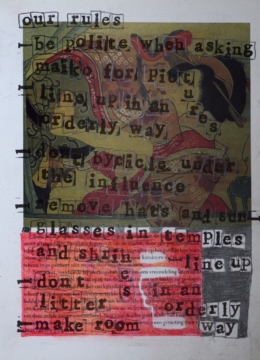 our rules
1 be polite when asking
maiko for Pict
ures
1 line up in an
orderly way,
1 dont bycicle under
the influence
1 remove hats and sun
glasses in temples
and shrin
es
1 line up
1 dont
litter
in an
orderly
1 make room
way